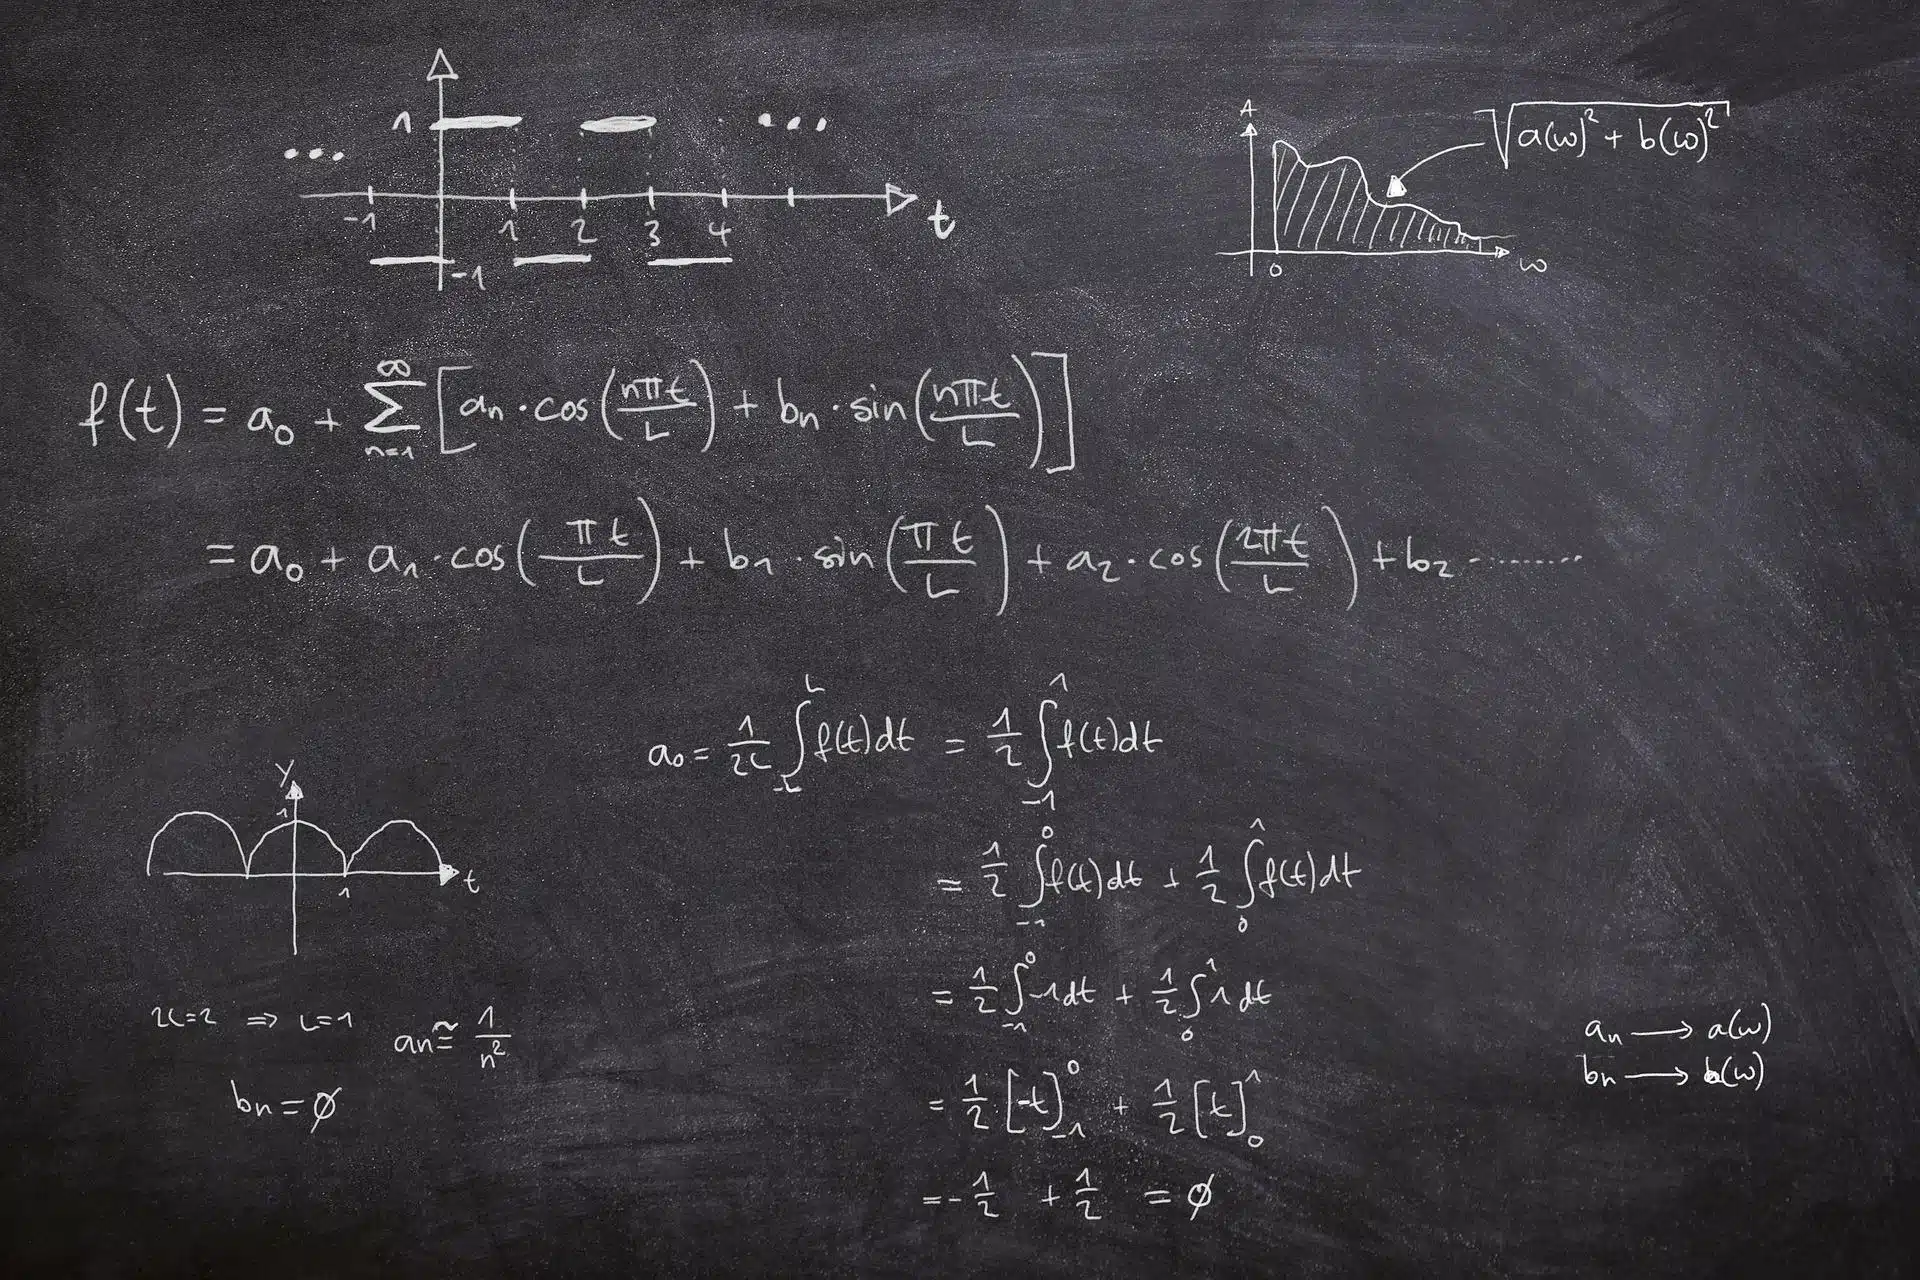 1
-1 1 2 3 4 t
-1
A
√a(ω)² + b(ω)²
0 ω
f(t) = a₀ + ∞ Σ n=1 [aₙ · cos(nπt/L) + bₙ · sin(nπt/L)]
= a₀ + a₁ · cos(πt/L) + b₁ · sin(πt/L) + a₂ · cos(2πt/L) + b₂ ········
a₀ = 1/2L ∫_-L^L f(t)dt = 1/2 ∫_-1^1 f(t)dt
= 1/2 ∫_-1^0 f(t)dt + 1/2 ∫_0^1 f(t)dt
= 1/2 ∫_-1^0 -1dt + 1/2 ∫_0^1 1dt
= 1/2 [-t]_-1^0 + 1/2 [t]_0^1
= -1/2 + 1/2 = ∅
y
1
1 t
2L=2 ⇒ L=1
aₙ ≅ 1/n²
bₙ = ∅
aₙ → a(ω)
bₙ → b(ω)